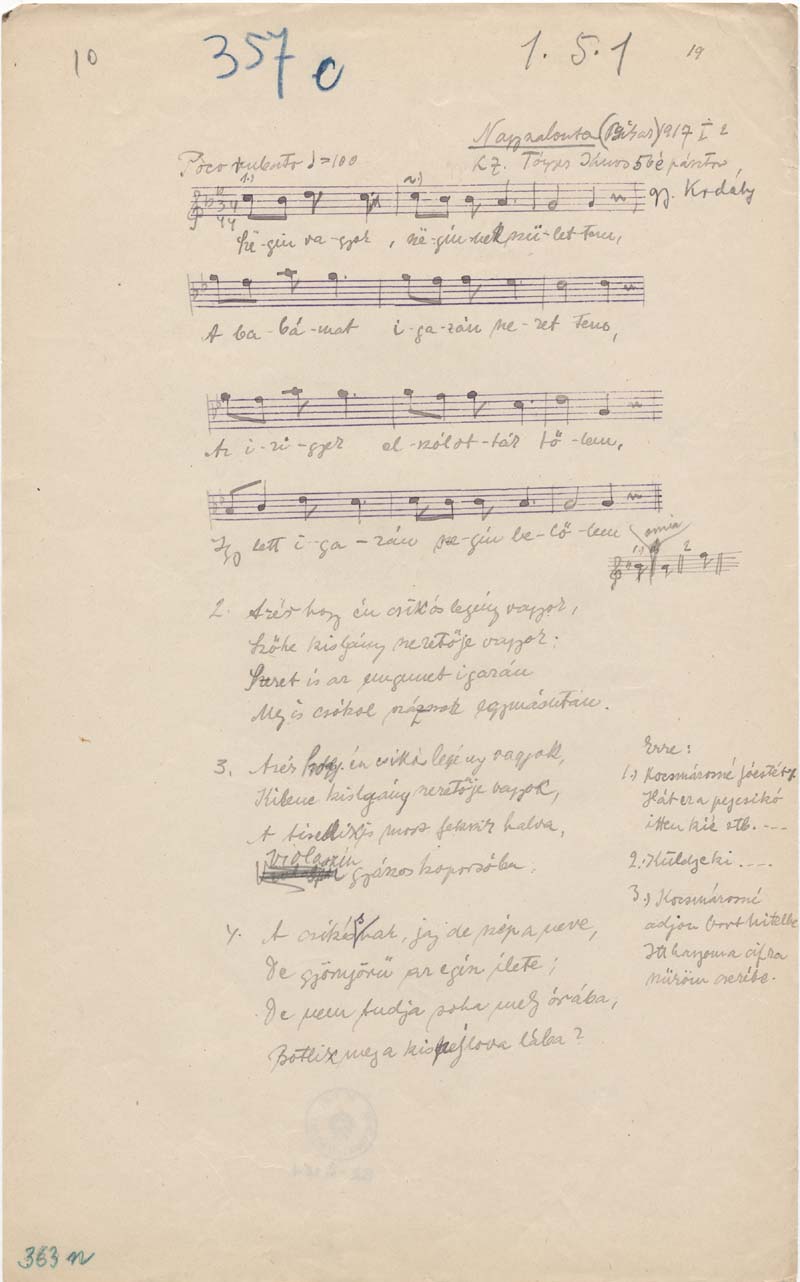 10 357 c 1.5.1 19
Nagyszalonta (Bihar) 1917 I 2
Poco rubato ♩=100
János 56 é pásztor
gy. Kodály
1.) 2.)
Szë-gin va-gyok, szë-gín-nek szü-let-tem,
A ba-bá-mat i-ga-zán sze-ret-tem,
Az i-ri-gyek el-szólot-ták tő-lem,
Így lett i-ga-zán sze-gín be-lő-lem
1.) 2
2. Azér hogy én csikós legény vagyok,
Szőke kislány szeretője vagyok;
Szeret is az engemet igazán
Meg is csókol százszor egymásután.
3. Azér hogy én csikós legény vagyok,
Kilenc kislány szeretője vagyok,
A tizedik is most fekszik halva,
violaszín
gyászos koporsóba.
4. A csikósnak, jaj de szép a neve,
De gyönyörű az egész ílete;
De nem tudja soha mely órába,
Botlik meg a kis pej lova lába?
Erre:
1.) Kocsmárosné jóestét
Hát ez a pejcsikó
itten kié stb. ----
2. Küldze ki ----
3.) Kocsmárosné
adjon bort hitelbe
Itt hagyom a cifra
szűröm cserébe.
363 n